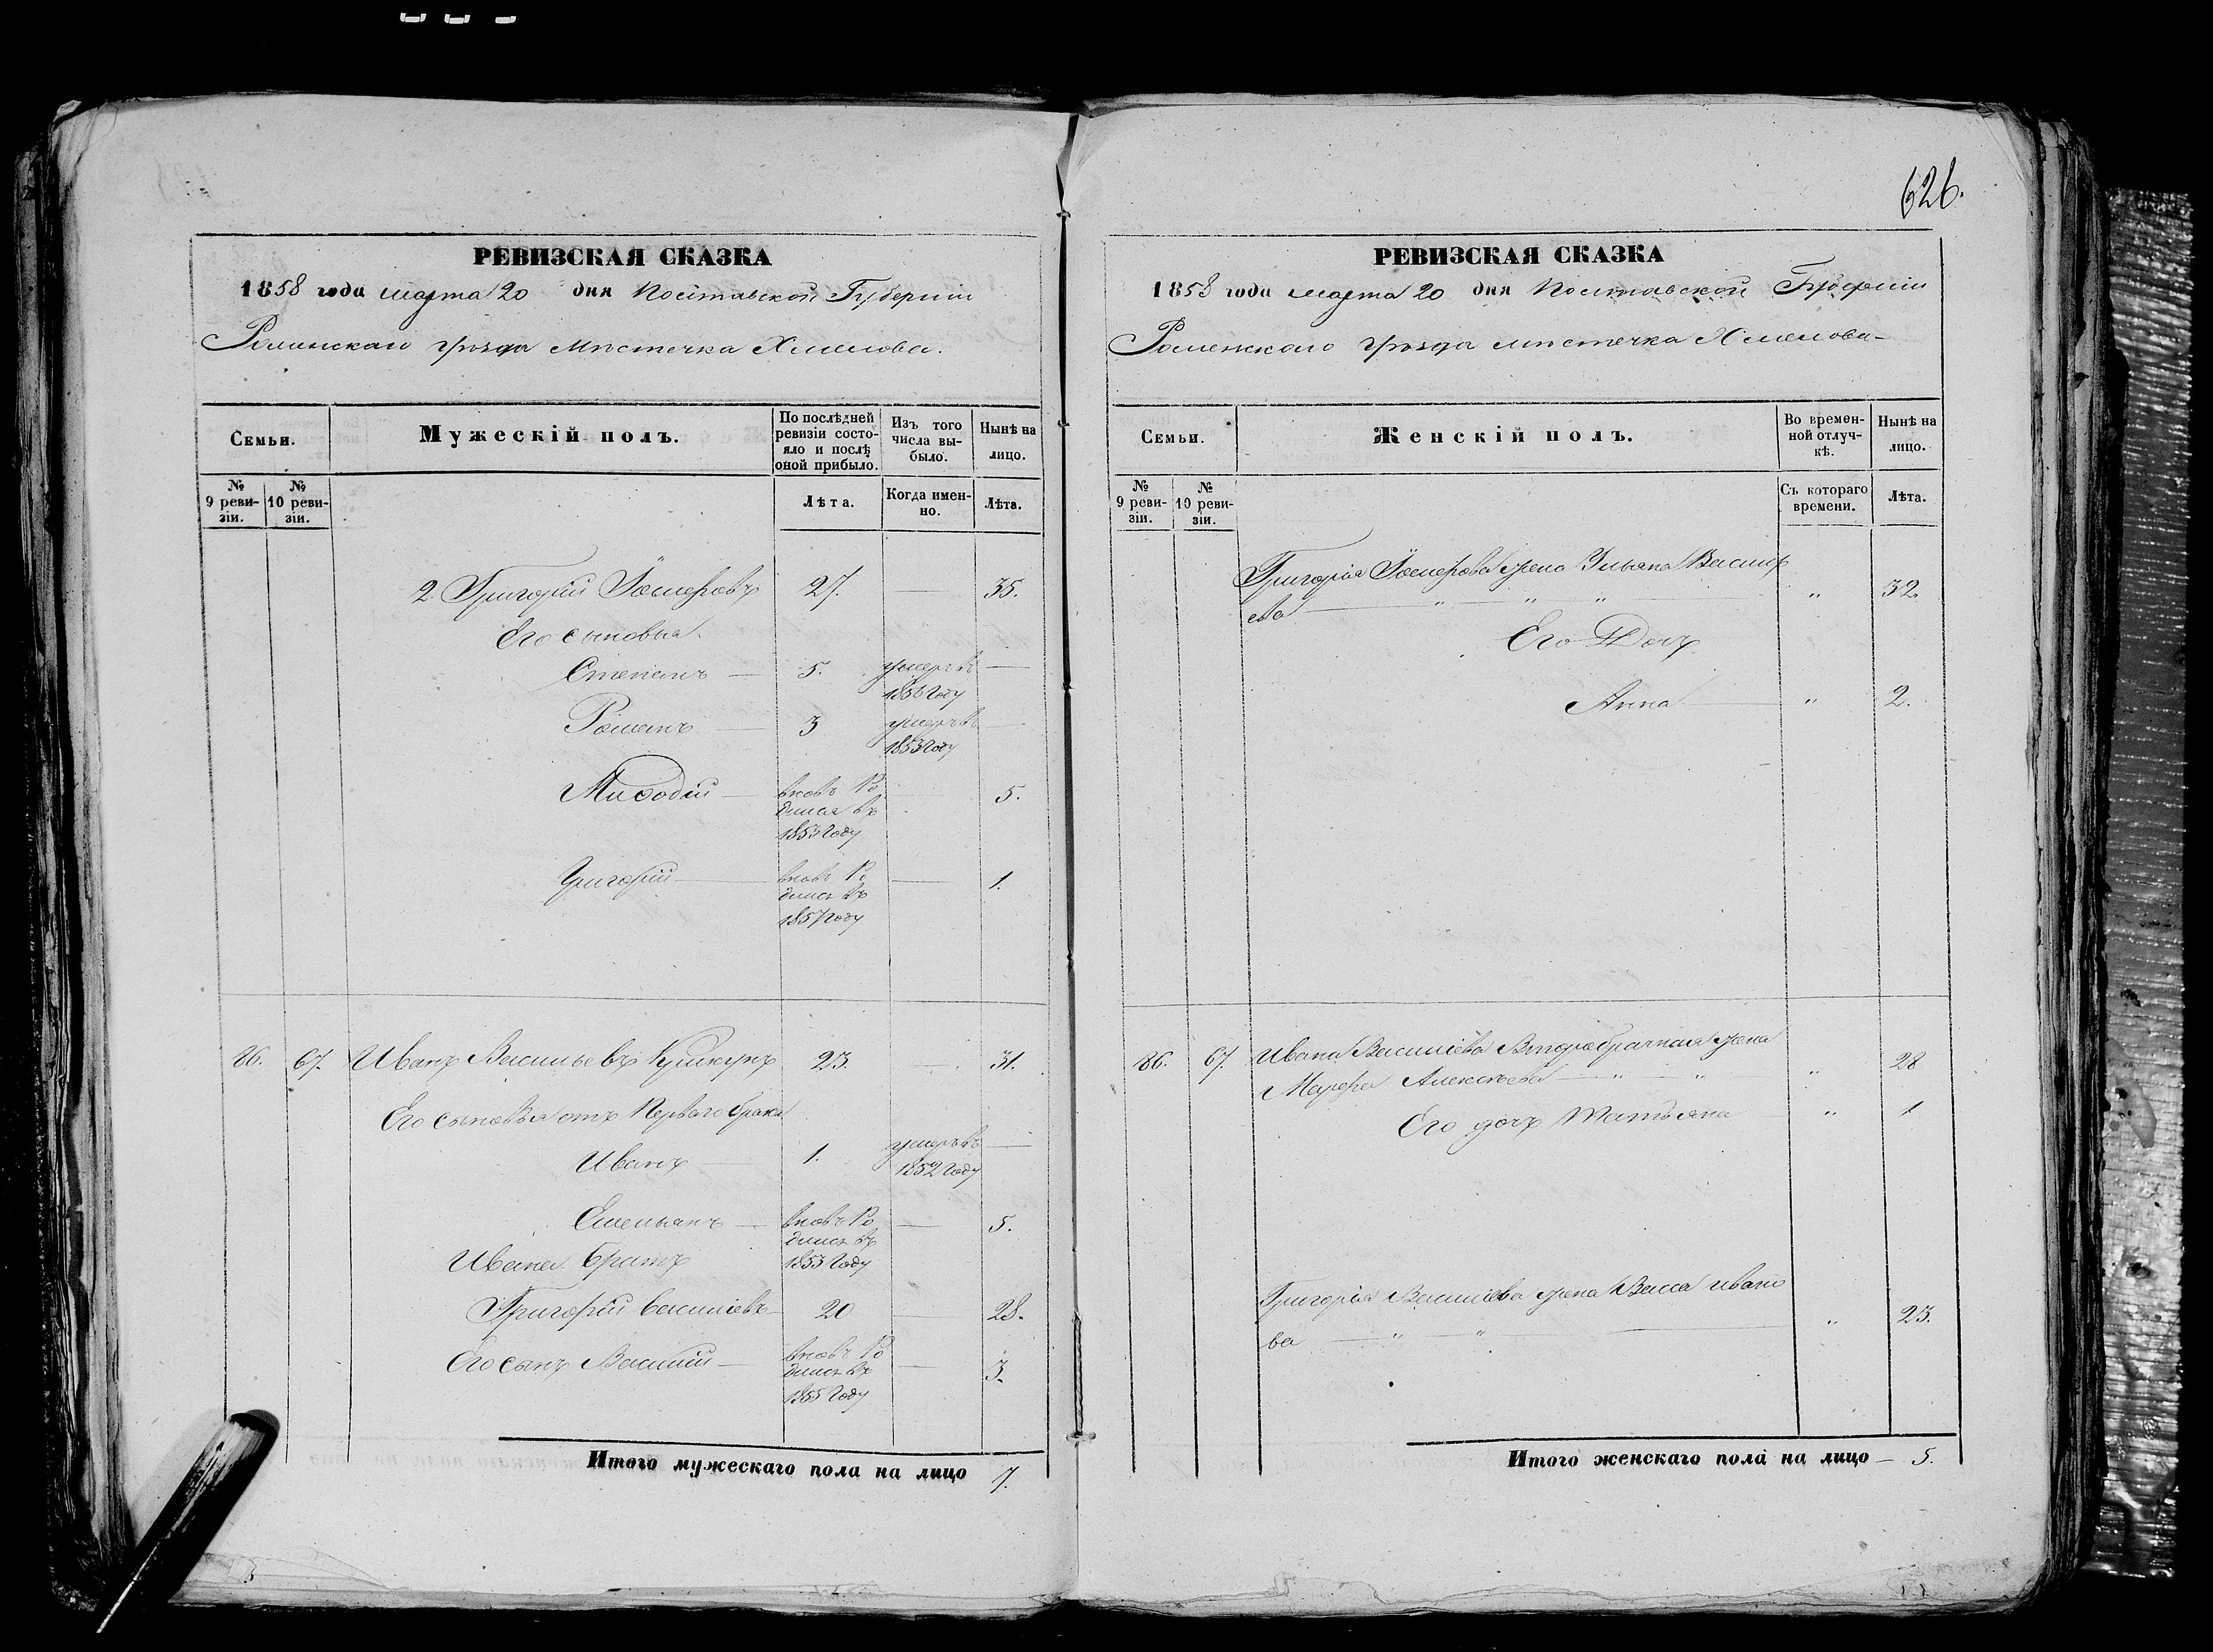 РЕВИЗСКАЯ СКАЗКА
1858 года марта 20 дня Полтавской Губерніи
Роменскаго уѣзда мѣстечка Хмелова.
Семьи.
Мужескій полъ.
По послѣдней ревизіи состояло и послѣ оной прибыло.
Изъ того числа выбыло.
Нынѣ на лицо.
№ 9 ревизіи.
№ 10 ревизіи.
Лѣта.
Когда именно.
Лѣта.
2. Григорій 27. — 35.
Его сыновья.
Степанъ — 5. умеръ въ —
1856 Году
Романъ — 3 умеръ въ —
1853 Году
Мифодій — вновь Ро — 5.
дился въ
1853 Году
Григорій — вновь Ро — 1.
дился въ
1857 Году
86. 67. Иванъ Васильевъ 23. — 31.
Его сыновья отъ Перваго брака
Иванъ — 1. умеръ въ —
1852 Году
Емельянъ — вновь Ро — 5.
дился въ
Ивана братъ 1853 Году
Григорій Василіевъ 20 — 28.
Его сынъ Василій — вновь Ро — 3.
дился въ
1855 Году
Итого мужескаго пола на лицо 7.
626.
РЕВИЗСКАЯ СКАЗКА
1858 года марта 20 дня Полтавской Губерніи
Роменскаго уѣзда мѣстечка Хмелова
Семьи.
Женскій полъ.
Во временной отлучкѣ.
Нынѣ на лицо.
№ 9 ревизіи.
№ 10 ревизіи.
Съ котораго времени.
Лѣта.
Григорія жена Ульяна Василь
ева — " — " — " — " 32.
Его Дочь
Анна — " 2.
86. 67. Ивана Василіева Второбрачная жена
Марфа Алексѣева — " — " " 28
Его дочь Татьяна — " 1
Григорія Василіева жена Васса Ивано
ва — " — " — " 23.
Итого женскаго пола на лицо — 5.